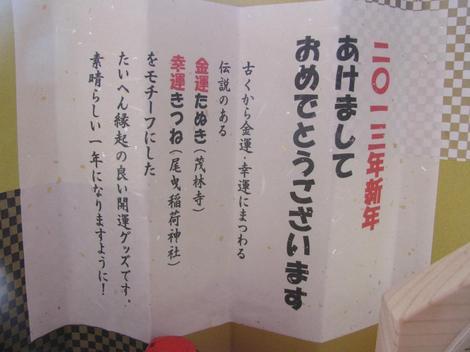 二〇一三年新年
あけまして
おめでとうございます
古くから金運・幸運にまつわる
伝説のある
金運たぬき(茂林寺)
幸運きつね(尾曳稲荷神社)
をモチーフにした
たいへん縁起の良い開運グッズです。
素晴らしい一年になりますように!